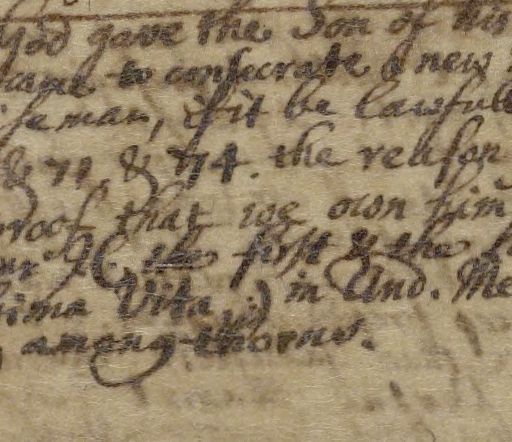 God gave the Son of his
came to consecrate a new
wise man, if it be lawfull
& 71. & 74. the reason
proof that we own him
the first & the
Vita :) in And. Me
among thorns.